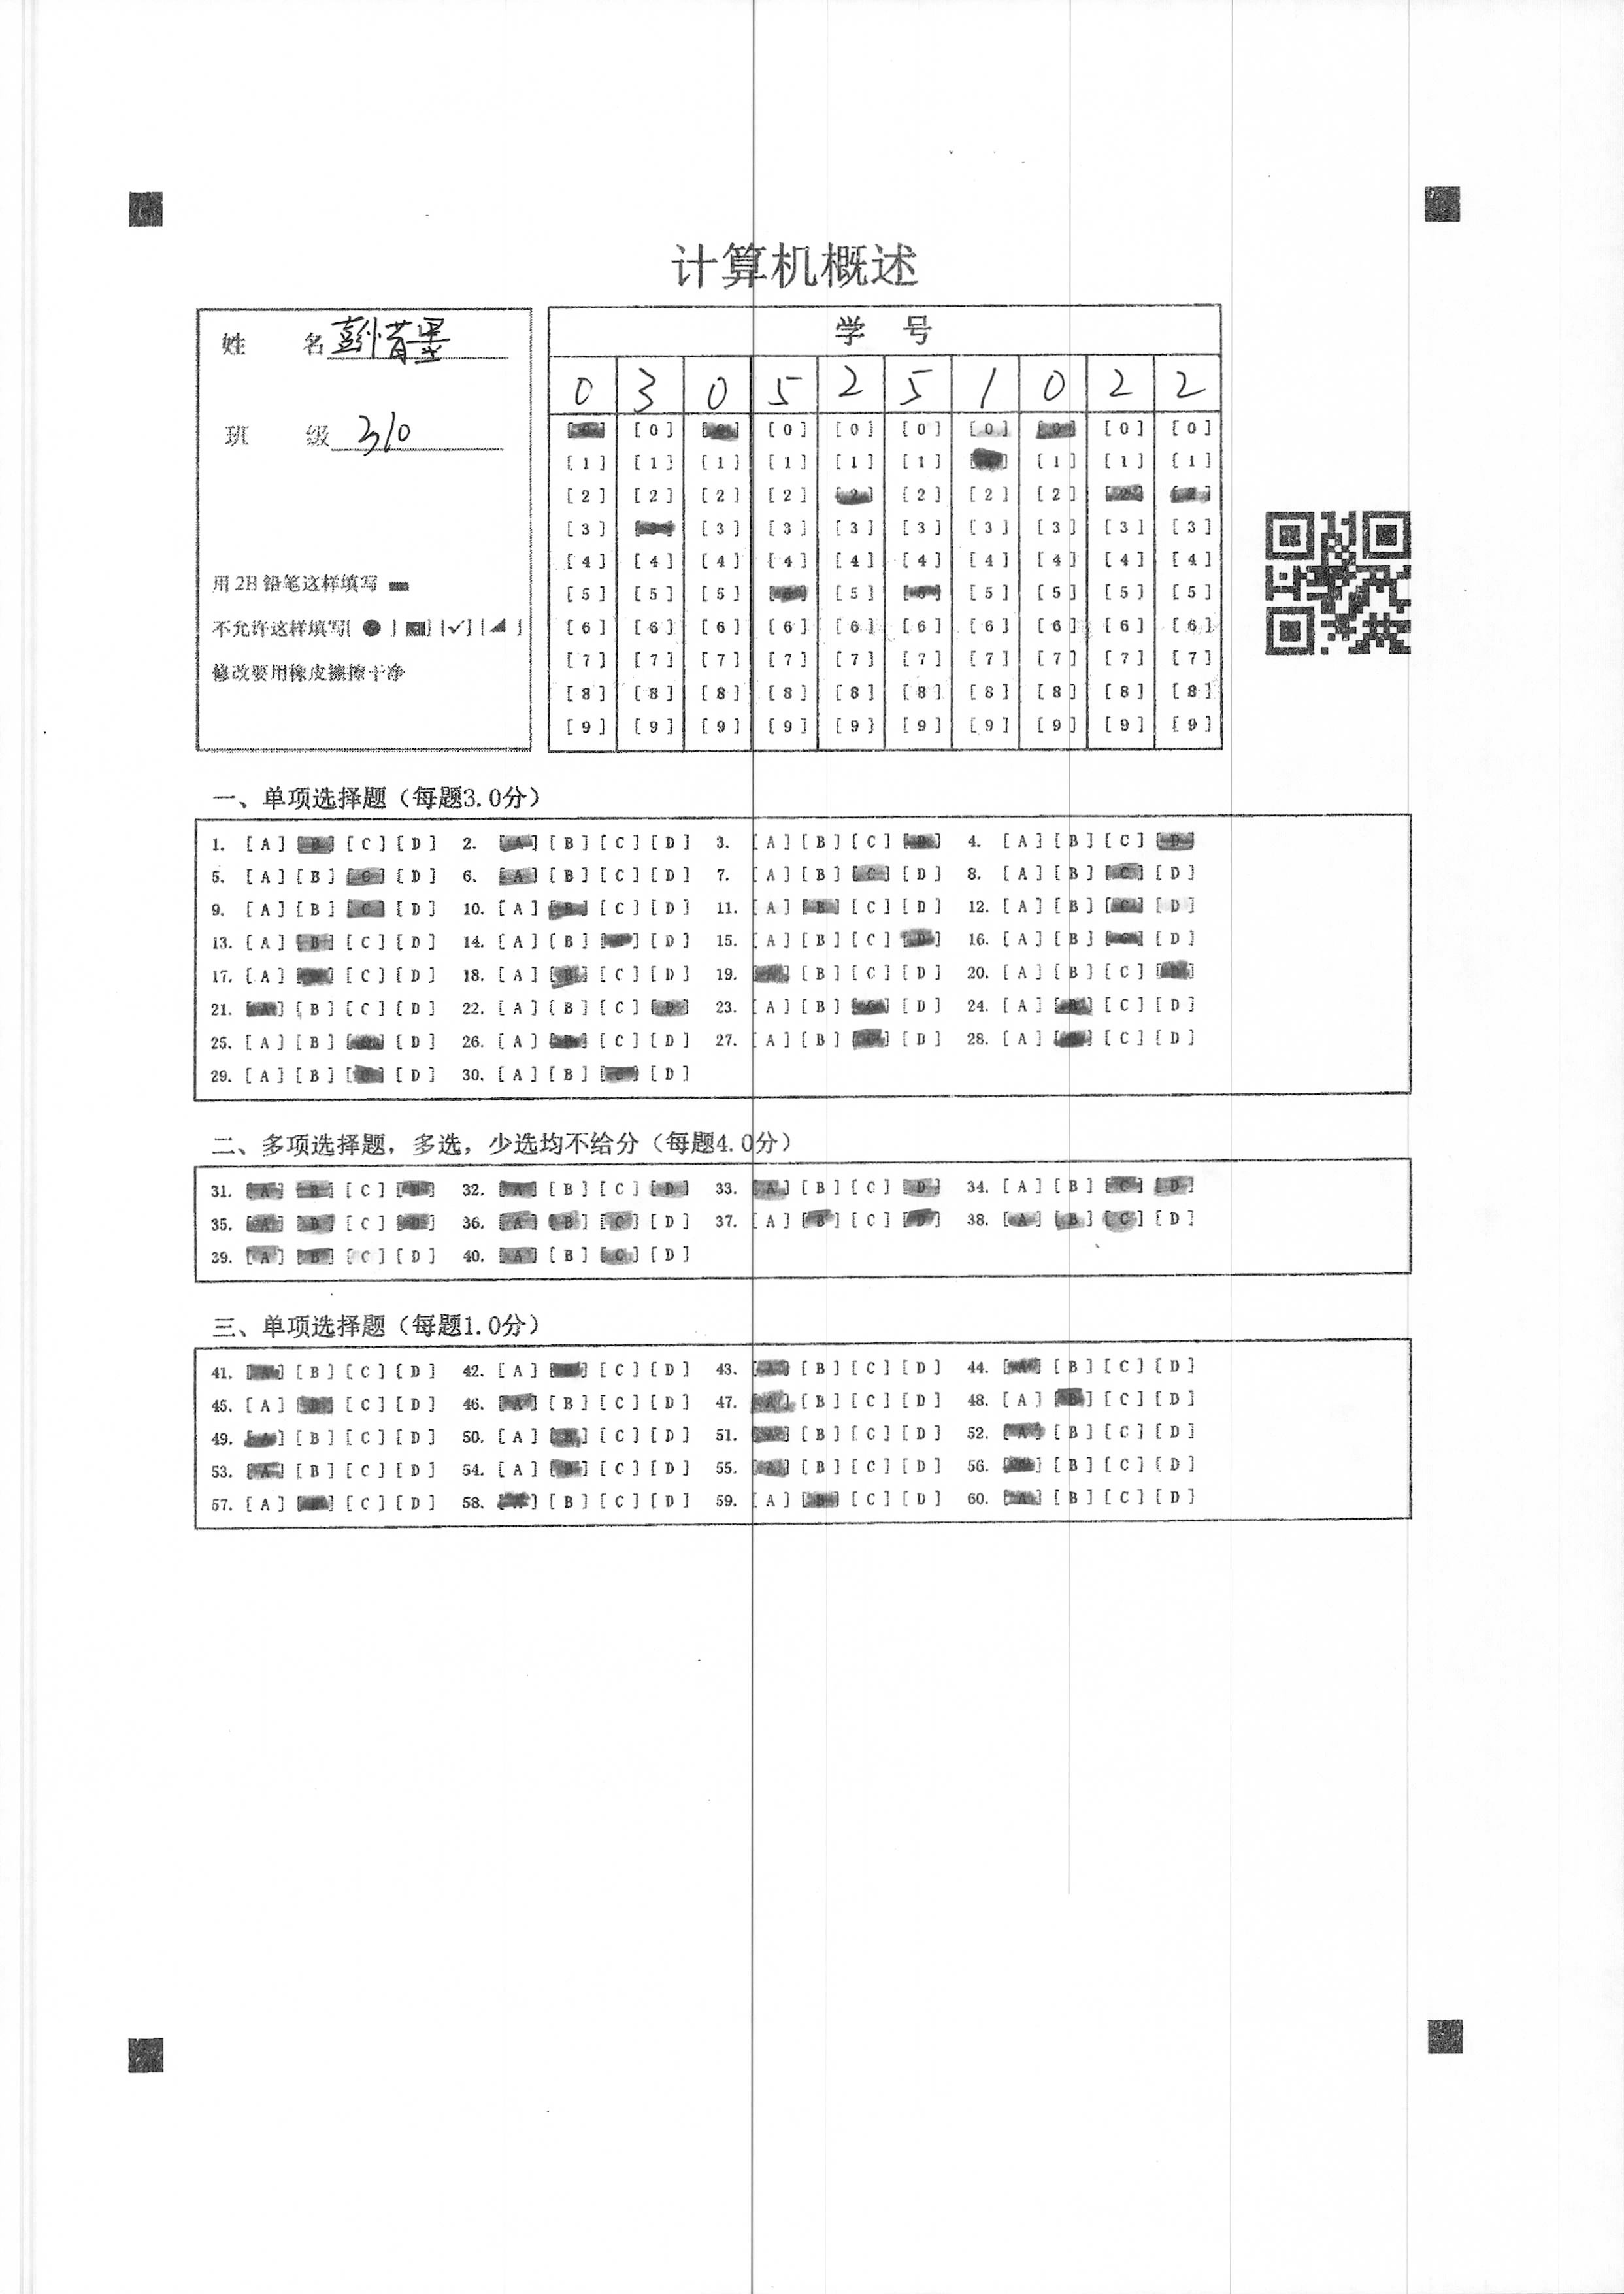 计算机概述
姓 名 彭惜墨
班 级 310
用 2B 铅笔这样填写
不允许这样填写[ ● ] [ ] [√] [◢ ]
修改要用橡皮擦擦干净
学 号
0 3 0 5 2 5 1 0 2 2
[0] [0] [0] [0] [0] [0] [0] [0] [0] [0]
[1] [1] [1] [1] [1] [1] [1] [1] [1] [1]
[2] [2] [2] [2] [2] [2] [2] [2] [2] [2]
[3] [3] [3] [3] [3] [3] [3] [3] [3] [3]
[4] [4] [4] [4] [4] [4] [4] [4] [4] [4]
[5] [5] [5] [5] [5] [5] [5] [5] [5] [5]
[6] [6] [6] [6] [6] [6] [6] [6] [6] [6]
[7] [7] [7] [7] [7] [7] [7] [7] [7] [7]
[8] [8] [8] [8] [8] [8] [8] [8] [8] [8]
[9] [9] [9] [9] [9] [9] [9] [9] [9] [9]
一、单项选择题（每题3.0分）
1. [A] [B] [C] [D] 2. [A] [B] [C] [D] 3. [A] [B] [C] [D] 4. [A] [B] [C] [D]
5. [A] [B] [C] [D] 6. [A] [B] [C] [D] 7. [A] [B] [C] [D] 8. [A] [B] [C] [D]
9. [A] [B] [C] [D] 10. [A] [B] [C] [D] 11. [A] [B] [C] [D] 12. [A] [B] [C] [D]
13. [A] [B] [C] [D] 14. [A] [B] [C] [D] 15. [A] [B] [C] [D] 16. [A] [B] [C] [D]
17. [A] [B] [C] [D] 18. [A] [B] [C] [D] 19. [A] [B] [C] [D] 20. [A] [B] [C] [D]
21. [A] [B] [C] [D] 22. [A] [B] [C] [D] 23. [A] [B] [C] [D] 24. [A] [B] [C] [D]
25. [A] [B] [C] [D] 26. [A] [B] [C] [D] 27. [A] [B] [C] [D] 28. [A] [B] [C] [D]
29. [A] [B] [C] [D] 30. [A] [B] [C] [D]
二、多项选择题，多选，少选均不给分（每题4.0分）
31. [A] [B] [C] [D] 32. [A] [B] [C] [D] 33. [A] [B] [C] [D] 34. [A] [B] [C] [D]
35. [A] [B] [C] [D] 36. [A] [B] [C] [D] 37. [A] [B] [C] [D] 38. [A] [B] [C] [D]
39. [A] [B] [C] [D] 40. [A] [B] [C] [D]
三、单项选择题（每题1.0分）
41. [A] [B] [C] [D] 42. [A] [B] [C] [D] 43. [A] [B] [C] [D] 44. [A] [B] [C] [D]
45. [A] [B] [C] [D] 46. [A] [B] [C] [D] 47. [A] [B] [C] [D] 48. [A] [B] [C] [D]
49. [A] [B] [C] [D] 50. [A] [B] [C] [D] 51. [A] [B] [C] [D] 52. [A] [B] [C] [D]
53. [A] [B] [C] [D] 54. [A] [B] [C] [D] 55. [A] [B] [C] [D] 56. [A] [B] [C] [D]
57. [A] [B] [C] [D] 58. [A] [B] [C] [D] 59. [A] [B] [C] [D] 60. [A] [B] [C] [D]